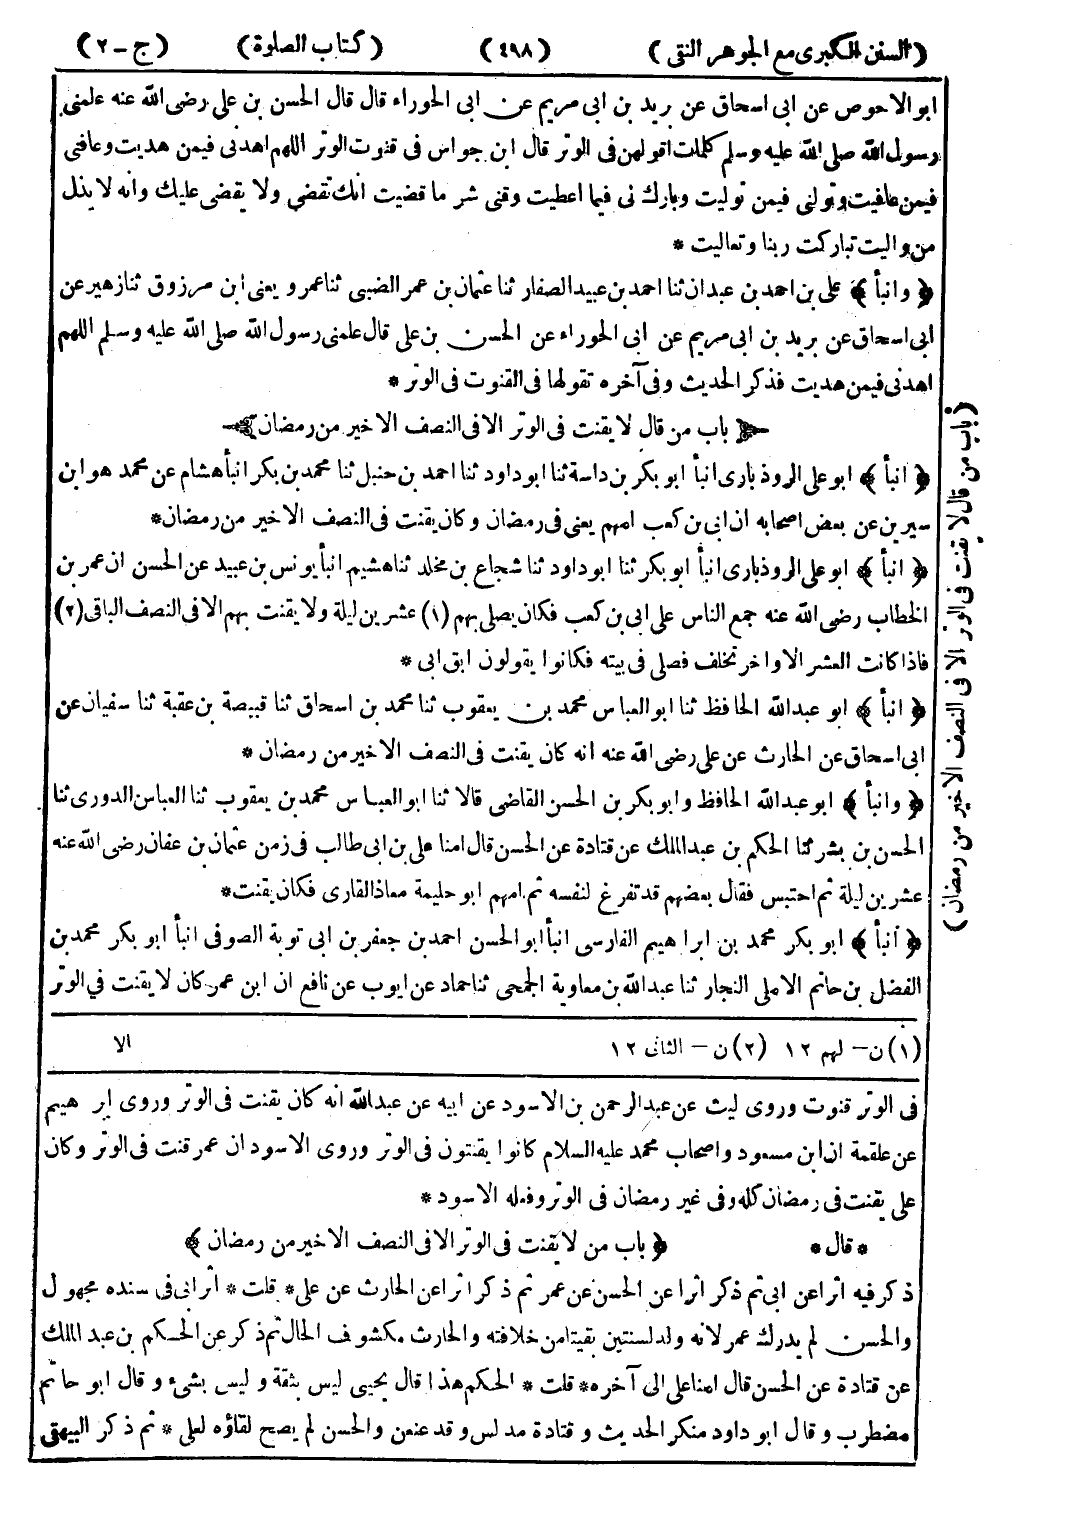 (السنن الكبرى مع الجوهر النقى) (٤٩٨) (كتاب الصلوة) (ج - ٢)
ابو الاحوص عن ابى اسحاق عن بريد بن ابى مريم عن ابى الحوراء قال قال الحسن بن على رضى الله عنه علمنى
رسول الله صلى الله عليه وسلم كلمات اقولهن فى الوتر قال ابن جواس فى قنوت الوتر اللهم اهدنى فيمن هديت وعافنى
فيمن عافيت وتولنى فيمن توليت وبارك لى فيما اعطيت وقنى شر ما قضيت انك تقضى ولا يقضى عليك وانه لا يذل
من واليت تباركت ربنا وتعاليت *
﴿ وانبأ ﴾ على بن احمد بن عبدان ثنا احمد بن عبيد الصفار ثنا عثمان بن عمر الضبى ثنا عمرو يعنى ابن مرزوق ثنا زهير عن
ابى اسحاق عن بريد بن ابى مريم عن ابى الحوراء عن الحسن بن على قال علمنى رسول الله صلى الله عليه وسلم اللهم
اهدنى فيمن هديت فذكر الحديث وفى آخره تقولها فى القنوت فى الوتر *
باب من قال لا يقنت فى الوتر الا فى النصف الاخير من رمضان
﴿ انبأ ﴾ ابو على الروذبارى انبأ ابو بكر بن داسة ثنا ابو داود ثنا احمد بن حنبل ثنا محمد بن بكر انبأ هشام عن محمد هو ابن
سيرين عن بعض اصحابه ان ابى بن كعب امهم يعنى فى رمضان وكان يقنت فى النصف الاخير من رمضان *
﴿ انبأ ﴾ ابو على الروذبارى انبأ ابو بكر ثنا ابو داود ثنا شجاع بن مخلد ثنا هشيم انبأ يونس بن عبيد عن الحسن ان عمر بن
الخطاب رضى الله عنه جمع الناس على ابى بن كعب فكان يصلى بهم (١) عشرين ليلة ولا يقنت بهم الا فى النصف الباقى (٢)
فاذا كانت العشر الاواخر تخلف فصلى فى بيته فكانوا يقولون ابق ابى *
﴿ انبأ ﴾ ابو عبد الله الحافظ ثنا ابو العباس محمد بن يعقوب ثنا محمد بن اسحاق ثنا قبيصة بن عقبة ثنا سفيان عن
ابى اسحاق عن الحارث عن على رضى الله عنه انه كان يقنت فى النصف الاخير من رمضان *
﴿ وانبأ ﴾ ابو عبد الله الحافظ وابو بكر بن الحسن القاضى قالا ثنا ابو العباس محمد بن يعقوب ثنا العباس الدورى ثنا
الحسن بن بشر ثنا الحكم بن عبد الملك عن قتادة عن الحسن قال امنا على بن ابى طالب فى زمن عثمان بن عفان رضى الله عنه
عشرين ليلة ثم احتبس فقال بعضهم قد تفرغ لنفسه ثم امهم ابو حليمة معاذ القارى فكان يقنت *
﴿ انبأ ﴾ ابو بكر محمد بن ابراهيم الفارسى انبأ ابو الحسن احمد بن جعفر بن ابى توبة الصوفى انبأ ابو بكر محمد بن
الفضل بن حاتم الاملى النجار ثنا عبد الله بن معاوية الجمحى ثنا حماد عن ايوب عن نافع ان ابن عمر كان لا يقنت في الوتر
الا
(١) ن - لهم ١٢ (٢) ن - الثانى ١٢
فى الوتر قنوت وروى ليث عن عبد الرحمن بن الاسود عن ابيه عن عبد الله انه كان يقنت فى الوتر وروى ابر هيم
عن علقمة ان ابن مسعود واصحاب محمد عليه السلام كانوا يقنتون فى الوتر وروى الاسود ان عمر قنت فى الوتر وكان
على يقنت فى رمضان كله وفى غير رمضان فى الوتر وفعله الاسود *
* قال * ﴿ باب من لا يقنت فى الوتر الا فى النصف الاخير من رمضان ﴾
ذكر فيه اثرا عن ابى ثم ذكر اثرا عن الحسن عن عمر ثم ذكر اثرا عن الحارث عن على * قلت * اثر ابى فى سنده مجهول
والحسن لم يدرك عمر لانه ولد لسنتين بقيتا من خلافته والحارث مكشوف الحال ثم ذكر عن الحكم بن عبد الملك
عن قتادة عن الحسن قال امنا على الى آخره * قلت * الحكم هذا قال يحيى ليس بثقة و ليس بشىء و قال ابو حاتم
مضطرب و قال ابو داود منكر الحديث و قتادة مدلس و قد عنعن والحسن لم يصح لقاؤه لعلى * ثم ذكر البيهقى
(باب من قال لا يقنت فى الوتر الا فى النصف الاخير من رمضان)